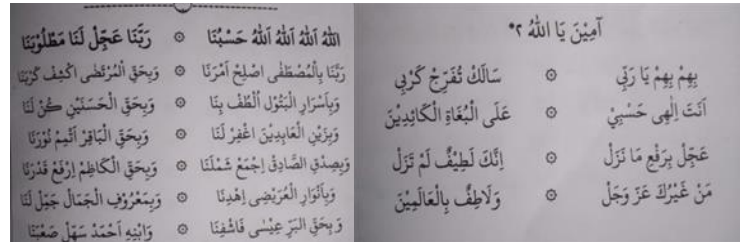 آمِيْنَ يَا اللهُ ٢*
بِهِمْ بِهِمْ يَا رَبِّي ۞ سَالَكْ تُفَرِّجْ كَرْبِي
اَنْتَ اِلٰهِى حَسْبِيْ ۞ عَلَى الْبُغَاةِ الْكَائِدِيْنَ
عَجِّلْ بِرَفْعِ مَا نَزَلْ ۞ اِنَّكَ لَطِيْفٌ لَمْ تَزَلْ
مَنْ غَيْرُكَ عَزَّ وَجَلْ ۞ وَلَاطِفٌ بِالْعَالَمِيْنَ
اَللهُ اَللهُ اَللهُ اَللهُ حَسْبُنَا ۞ رَبَّنَا عَجِّلْ لَنَا مَطْلُوْبَنَا
رَبَّنَا بِالْمُصْطَفٰى اصْلِحْ اَمْرَنَا ۞ وَبِحَقِّ الْمُرْتَضٰى اكْشِفْ كَرْبَنَا
وَبِاَسْرَارِ الْبَتُوْلِ اُلْطُفْ بِنَا ۞ وَبِحَقِّ الْحَسَنَيْنِ كُنْ لَنَا
وَبِزَيْنِ الْعَابِدِيْنَ اغْفِرْ لَنَا ۞ وَبِحَقِّ الْبَاقِرْ اَتْمِمْ نُوْرَنَا
وَبِصِدْقِ الصَّادِقْ اِجْمَعْ شَمْلَنَا ۞ وَبِحَقِّ الْكَاظِمْ اِرْفَعْ قَدْرَنَا
وَبِاَنْوَارِ الْعُرَيْضِى اِهْدِنَا ۞ وَبِمَعْرُوْفِ الْجَمَالْ جَمِّلْ لَنَا
وَبِحَقِّ الْبَرِّ عِيْسٰى فَاشْفِنَا ۞ وَابْنِهِ اَحْمَدْ سَهِّلْ صَعْبَنَا